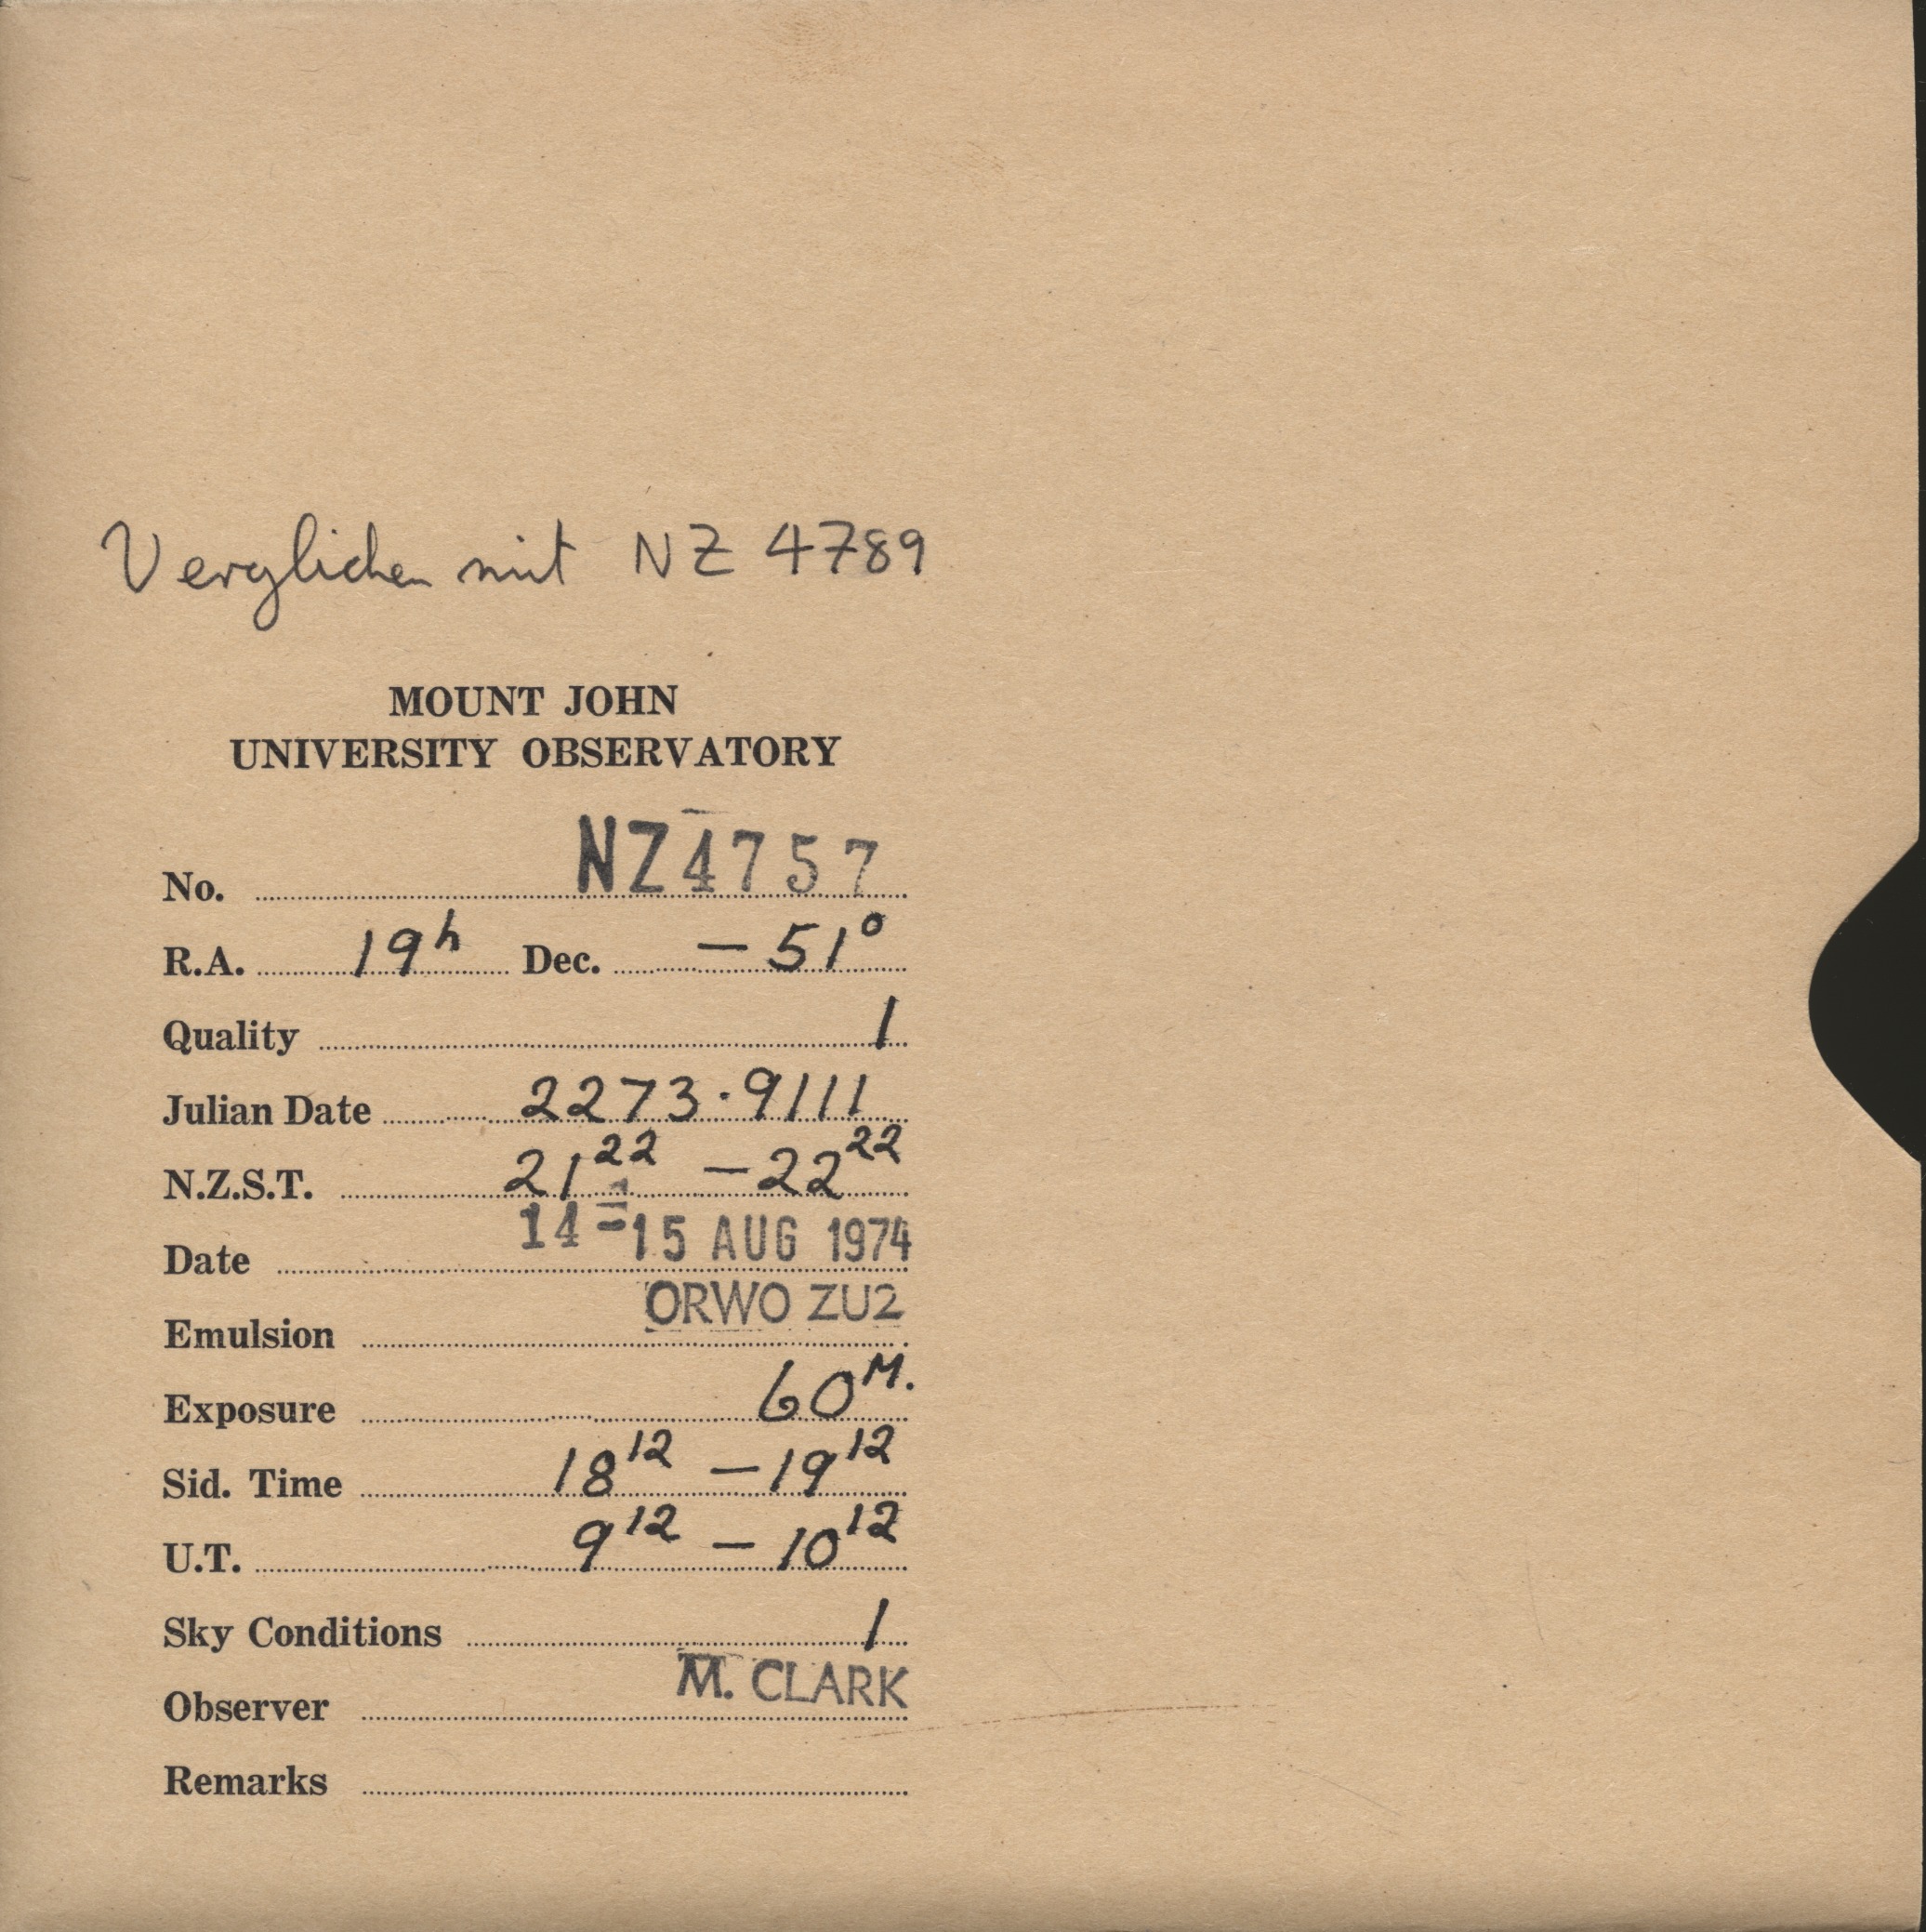 Verglichen mit NZ 4789
MOUNT JOHN
UNIVERSITY OBSERVATORY
No. NZ4757
R.A. 19h Dec. -51°
Quality 1
Julian Date 2273.9111
N.Z.S.T. 21 22 - 22 22
Date 14-15 AUG 1974
Emulsion ORWO ZU2
Exposure 60M.
Sid. Time 18 12 - 19 12
U.T. 9 12 - 10 12
Sky Conditions 1
Observer M. CLARK
Remarks